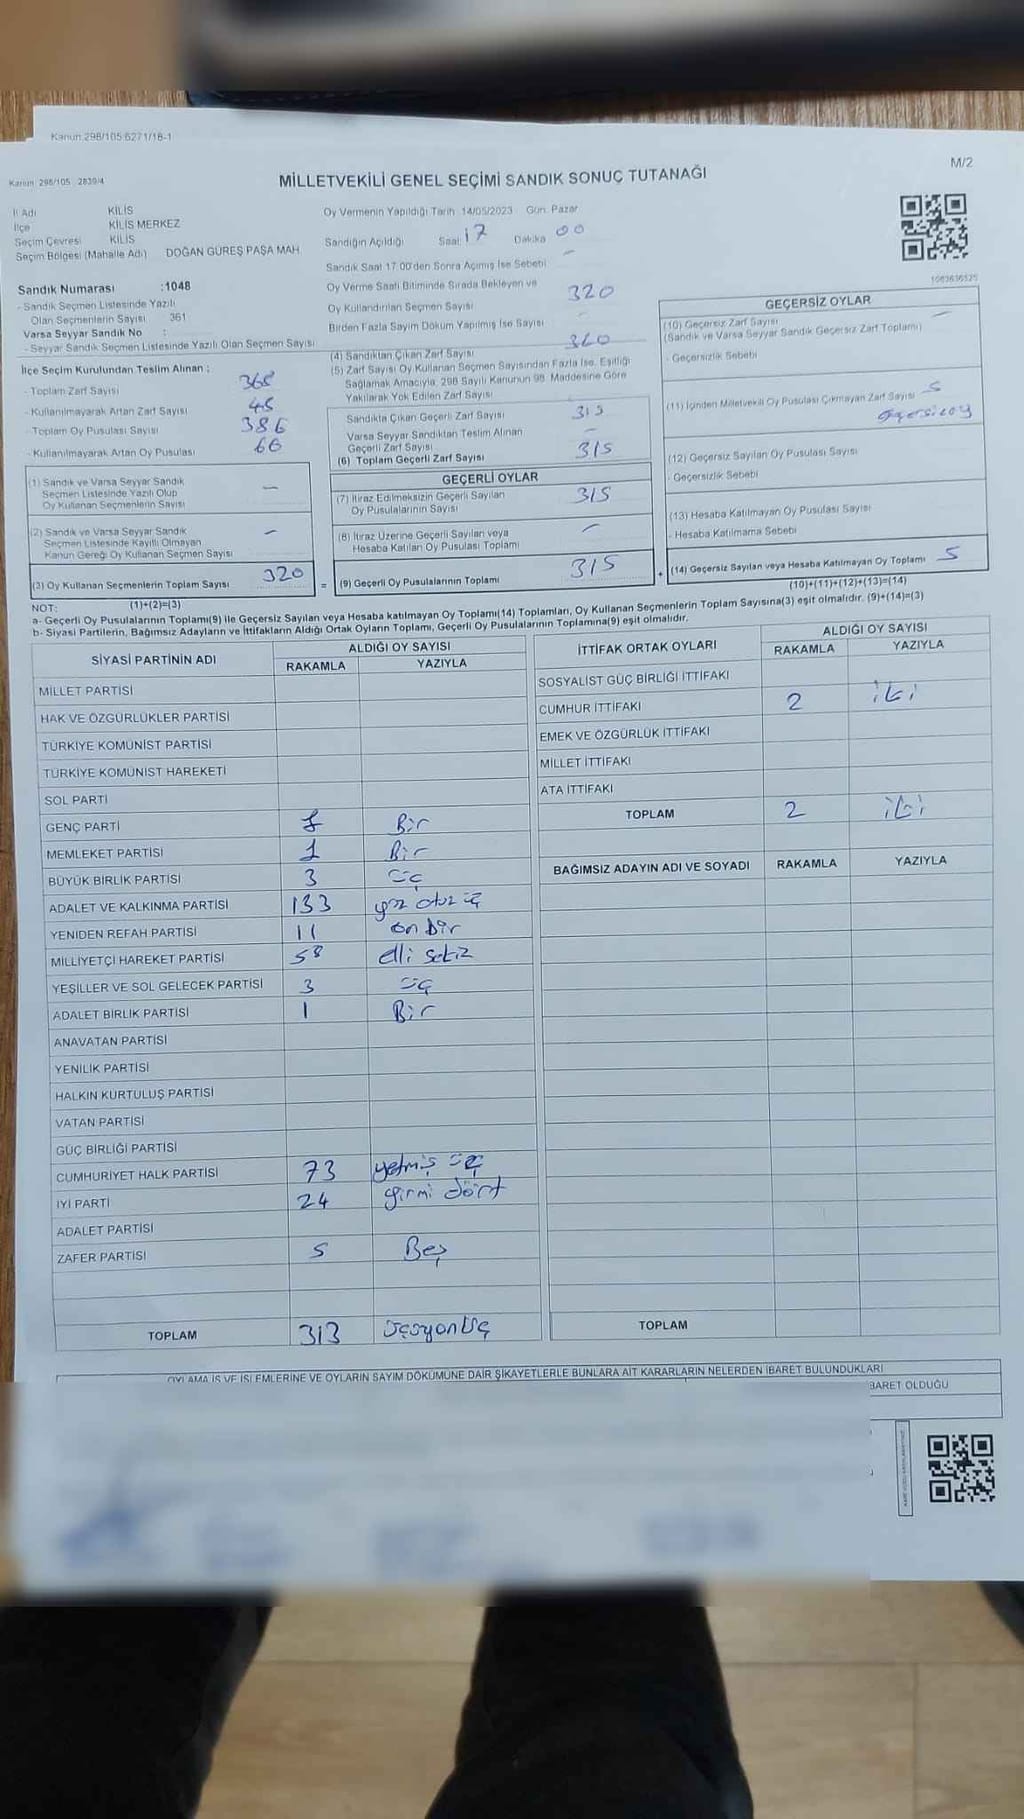 Kanun 298/105 6271/18-1
Kanun 298/105 2839/4
M/2
MİLLETVEKİLİ GENEL SEÇİMİ SANDIK SONUÇ TUTANAĞI
İl Adı KİLİS
İlçe KİLİS MERKEZ
Seçim Çevresi KİLİS
Seçim Bölgesi (Mahalle Adı) DOĞAN GÜREŞ PAŞA MAH.
Sandık Numarası :1048
- Sandık Seçmen Listesinde Yazılı
Olan Seçmenlerin Sayısı 361
Varsa Seyyar Sandık No :
- Seyyar Sandık Seçmen Listesinde Yazılı Olan Seçmen Sayısı
İlçe Seçim Kurulundan Teslim Alınan :
- Toplam Zarf Sayısı 368
- Kullanılmayarak Artan Zarf Sayısı 48
- Toplam Oy Pusulası Sayısı 386
- Kullanılmayarak Artan Oy Pusulası 66
(1) Sandık ve Varsa Seyyar Sandık
Seçmen Listesinde Yazılı Olup
Oy Kullanan Seçmenlerin Sayısı —
(2) Sandık ve Varsa Seyyar Sandık
Seçmen Listesinde Kayıtlı Olmayan
Kanun Gereği Oy Kullanan Seçmen Sayısı —
(3) Oy Kullanan Seçmenlerin Toplam Sayısı 320
Oy Vermenin Yapıldığı Tarih 14/05/2023 Gün: Pazar
Sandığın Açıldığı Saat 17 Dakika 00
Sandık Saat 17:00'den Sonra Açılmış İse Sebebi —
Oy Verme Saati Bitiminde Sırada Bekleyen ve
Oy Kullandırılan Seçmen Sayısı 320
Birden Fazla Sayım Döküm Yapılmış İse Sayısı -
(4) Sandıktan Çıkan Zarf Sayısı 320
(5) Zarf Sayısı Oy Kullanan Seçmen Sayısından Fazla İse, Eşitliği
Sağlamak Amacıyla, 298 Sayılı Kanunun 98. Maddesine Göre
Yakılarak Yok Edilen Zarf Sayısı
Sandıkta Çıkan Geçerli Zarf Sayısı 315
Varsa Seyyar Sandıktan Teslim Alınan
Geçerli Zarf Sayısı —
(6) Toplam Geçerli Zarf Sayısı 315
GEÇERLİ OYLAR
(7) İtiraz Edilmeksizin Geçerli Sayılan
Oy Pusulalarının Sayısı 315
(8) İtiraz Üzerine Geçerli Sayılan veya
Hesaba Katılan Oy Pusulası Toplamı —
= (9) Geçerli Oy Pusulalarının Toplamı 315
1083636525
GEÇERSİZ OYLAR
(10) Geçersiz Zarf Sayısı —
(Sandık ve Varsa Seyyar Sandık Geçersiz Zarf Toplamı)
- Geçersizlik Sebebi
(11) İçinden Milletvekili Oy Pusulası Çıkmayan Zarf Sayısı 5
Geçersiz oy
(12) Geçersiz Sayılan Oy Pusulası Sayısı
- Geçersizlik Sebebi
(13) Hesaba Katılmayan Oy Pusulası Sayısı
- Hesaba Katılmama Sebebi
+ (14) Geçersiz Sayılan veya Hesaba Katılmayan Oy Toplamı 5
(10)+(11)+(12)+(13)=(14)
NOT: (1)+(2)=(3)
a- Geçerli Oy Pusulalarının Toplamı(9) ile Geçersiz Sayılan veya Hesaba katılmayan Oy Toplamı(14) Toplamları, Oy Kullanan Seçmenlerin Toplam Sayısına(3) eşit olmalıdır. (9)+(14)=(3)
b- Siyasi Partilerin, Bağımsız Adayların ve İttifakların Aldığı Ortak Oyların Toplamı, Geçerli Oy Pusulalarının Toplamına(9) eşit olmalıdır.
SİYASİ PARTİNİN ADI ALDIĞI OY SAYISI
RAKAMLA YAZIYLA
MİLLET PARTİSİ
HAK VE ÖZGÜRLÜKLER PARTİSİ
TÜRKİYE KOMÜNİST PARTİSİ
TÜRKİYE KOMÜNİST HAREKETİ
SOL PARTİ
GENÇ PARTİ 1 Bir
MEMLEKET PARTİSİ 1 Bir
BÜYÜK BİRLİK PARTİSİ 3 üç
ADALET VE KALKINMA PARTİSİ 133 yüz otuz üç
YENİDEN REFAH PARTİSİ 11 on bir
MİLLİYETÇİ HAREKET PARTİSİ 58 elli sekiz
YEŞİLLER VE SOL GELECEK PARTİSİ 3 üç
ADALET BİRLİK PARTİSİ 1 Bir
ANAVATAN PARTİSİ
YENİLİK PARTİSİ
HALKIN KURTULUŞ PARTİSİ
VATAN PARTİSİ
GÜÇ BİRLİĞİ PARTİSİ
CUMHURİYET HALK PARTİSİ 73 yetmiş üç
İYİ PARTİ 24 yirmi dört
ADALET PARTİSİ
ZAFER PARTİSİ 5 Beş
TOPLAM 313 üçyonüç
İTTİFAK ORTAK OYLARI ALDIĞI OY SAYISI
RAKAMLA YAZIYLA
SOSYALİST GÜÇ BİRLİĞİ İTTİFAKI
CUMHUR İTTİFAKI 2 iki
EMEK VE ÖZGÜRLÜK İTTİFAKI
MİLLET İTTİFAKI
ATA İTTİFAKI
TOPLAM 2 iki
BAĞIMSIZ ADAYIN ADI VE SOYADI RAKAMLA YAZIYLA
TOPLAM
OYLAMA İŞ VE İŞLEMLERİNE VE OYLARIN SAYIM DÖKÜMÜNE DAİR ŞİKAYETLERLE BUNLARA AİT KARARLARIN NELERDEN İBARET BULUNDUKLARI
BARET OLDUĞU